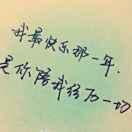 我最快乐那一年.
是你陪我经历一切